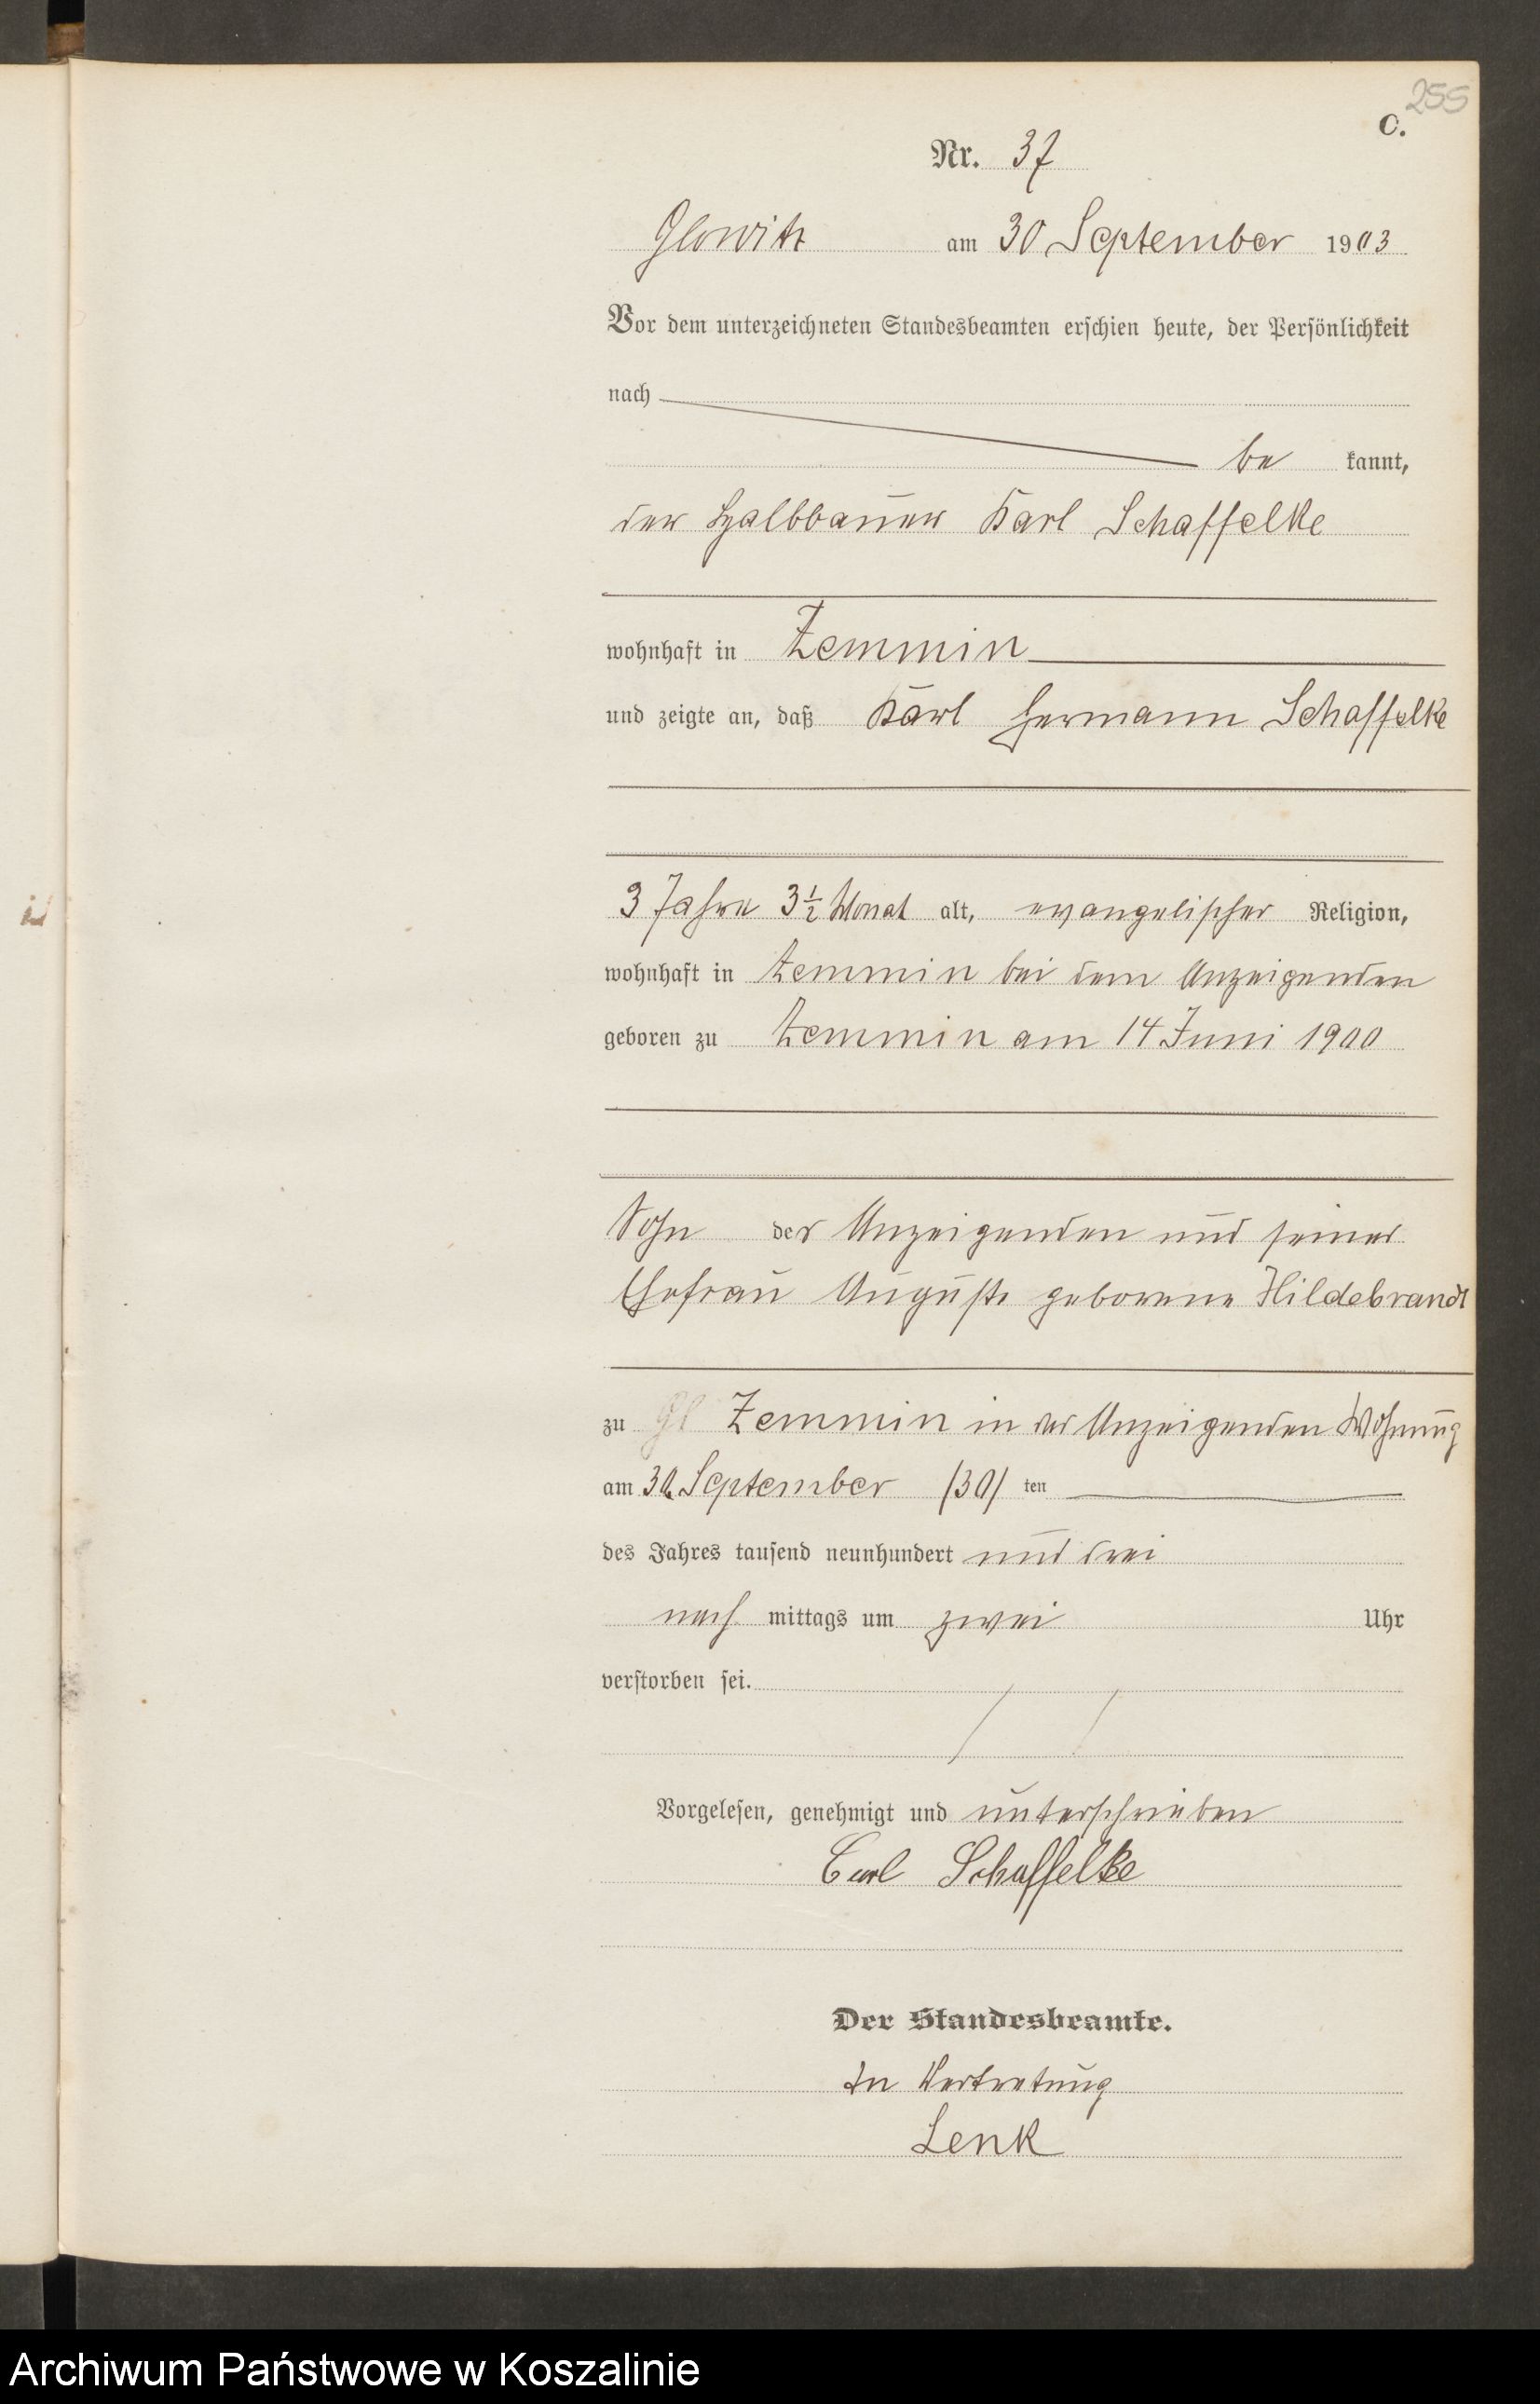 255
C.
Nr. 37
Glowitz am 30 September 1903
Vor dem unterzeichneten Standesbeamten erschien heute, der Persönlichkeit
nach
be kannt,
der Halbbauer Karl Schaffelke
wohnhaft in Zemmin
und zeigte an, daß Karl Hermann Schaffelke
3 Jahre 3½ Monat alt, evangelischer Religion,
wohnhaft in Zemmin bei dem Anzeigenden
geboren zu Zemmin am 14 Juni 1900
Sohn des Anzeigenden und seiner
Ehefrau Auguste geborene Hildebrandt
zu Gl Zemmin in des Anzeigenden Wohnung
am 30 September /30/ ten
des Jahres tausend neunhundert und drei
nach mittags um zwei Uhr
verstorben sei.
Vorgelesen, genehmigt und unterschrieben
Carl Schaffelke
Der Standesbeamte.
In Vertretung
Lenk
Archiwum Państwowe w Koszalinie